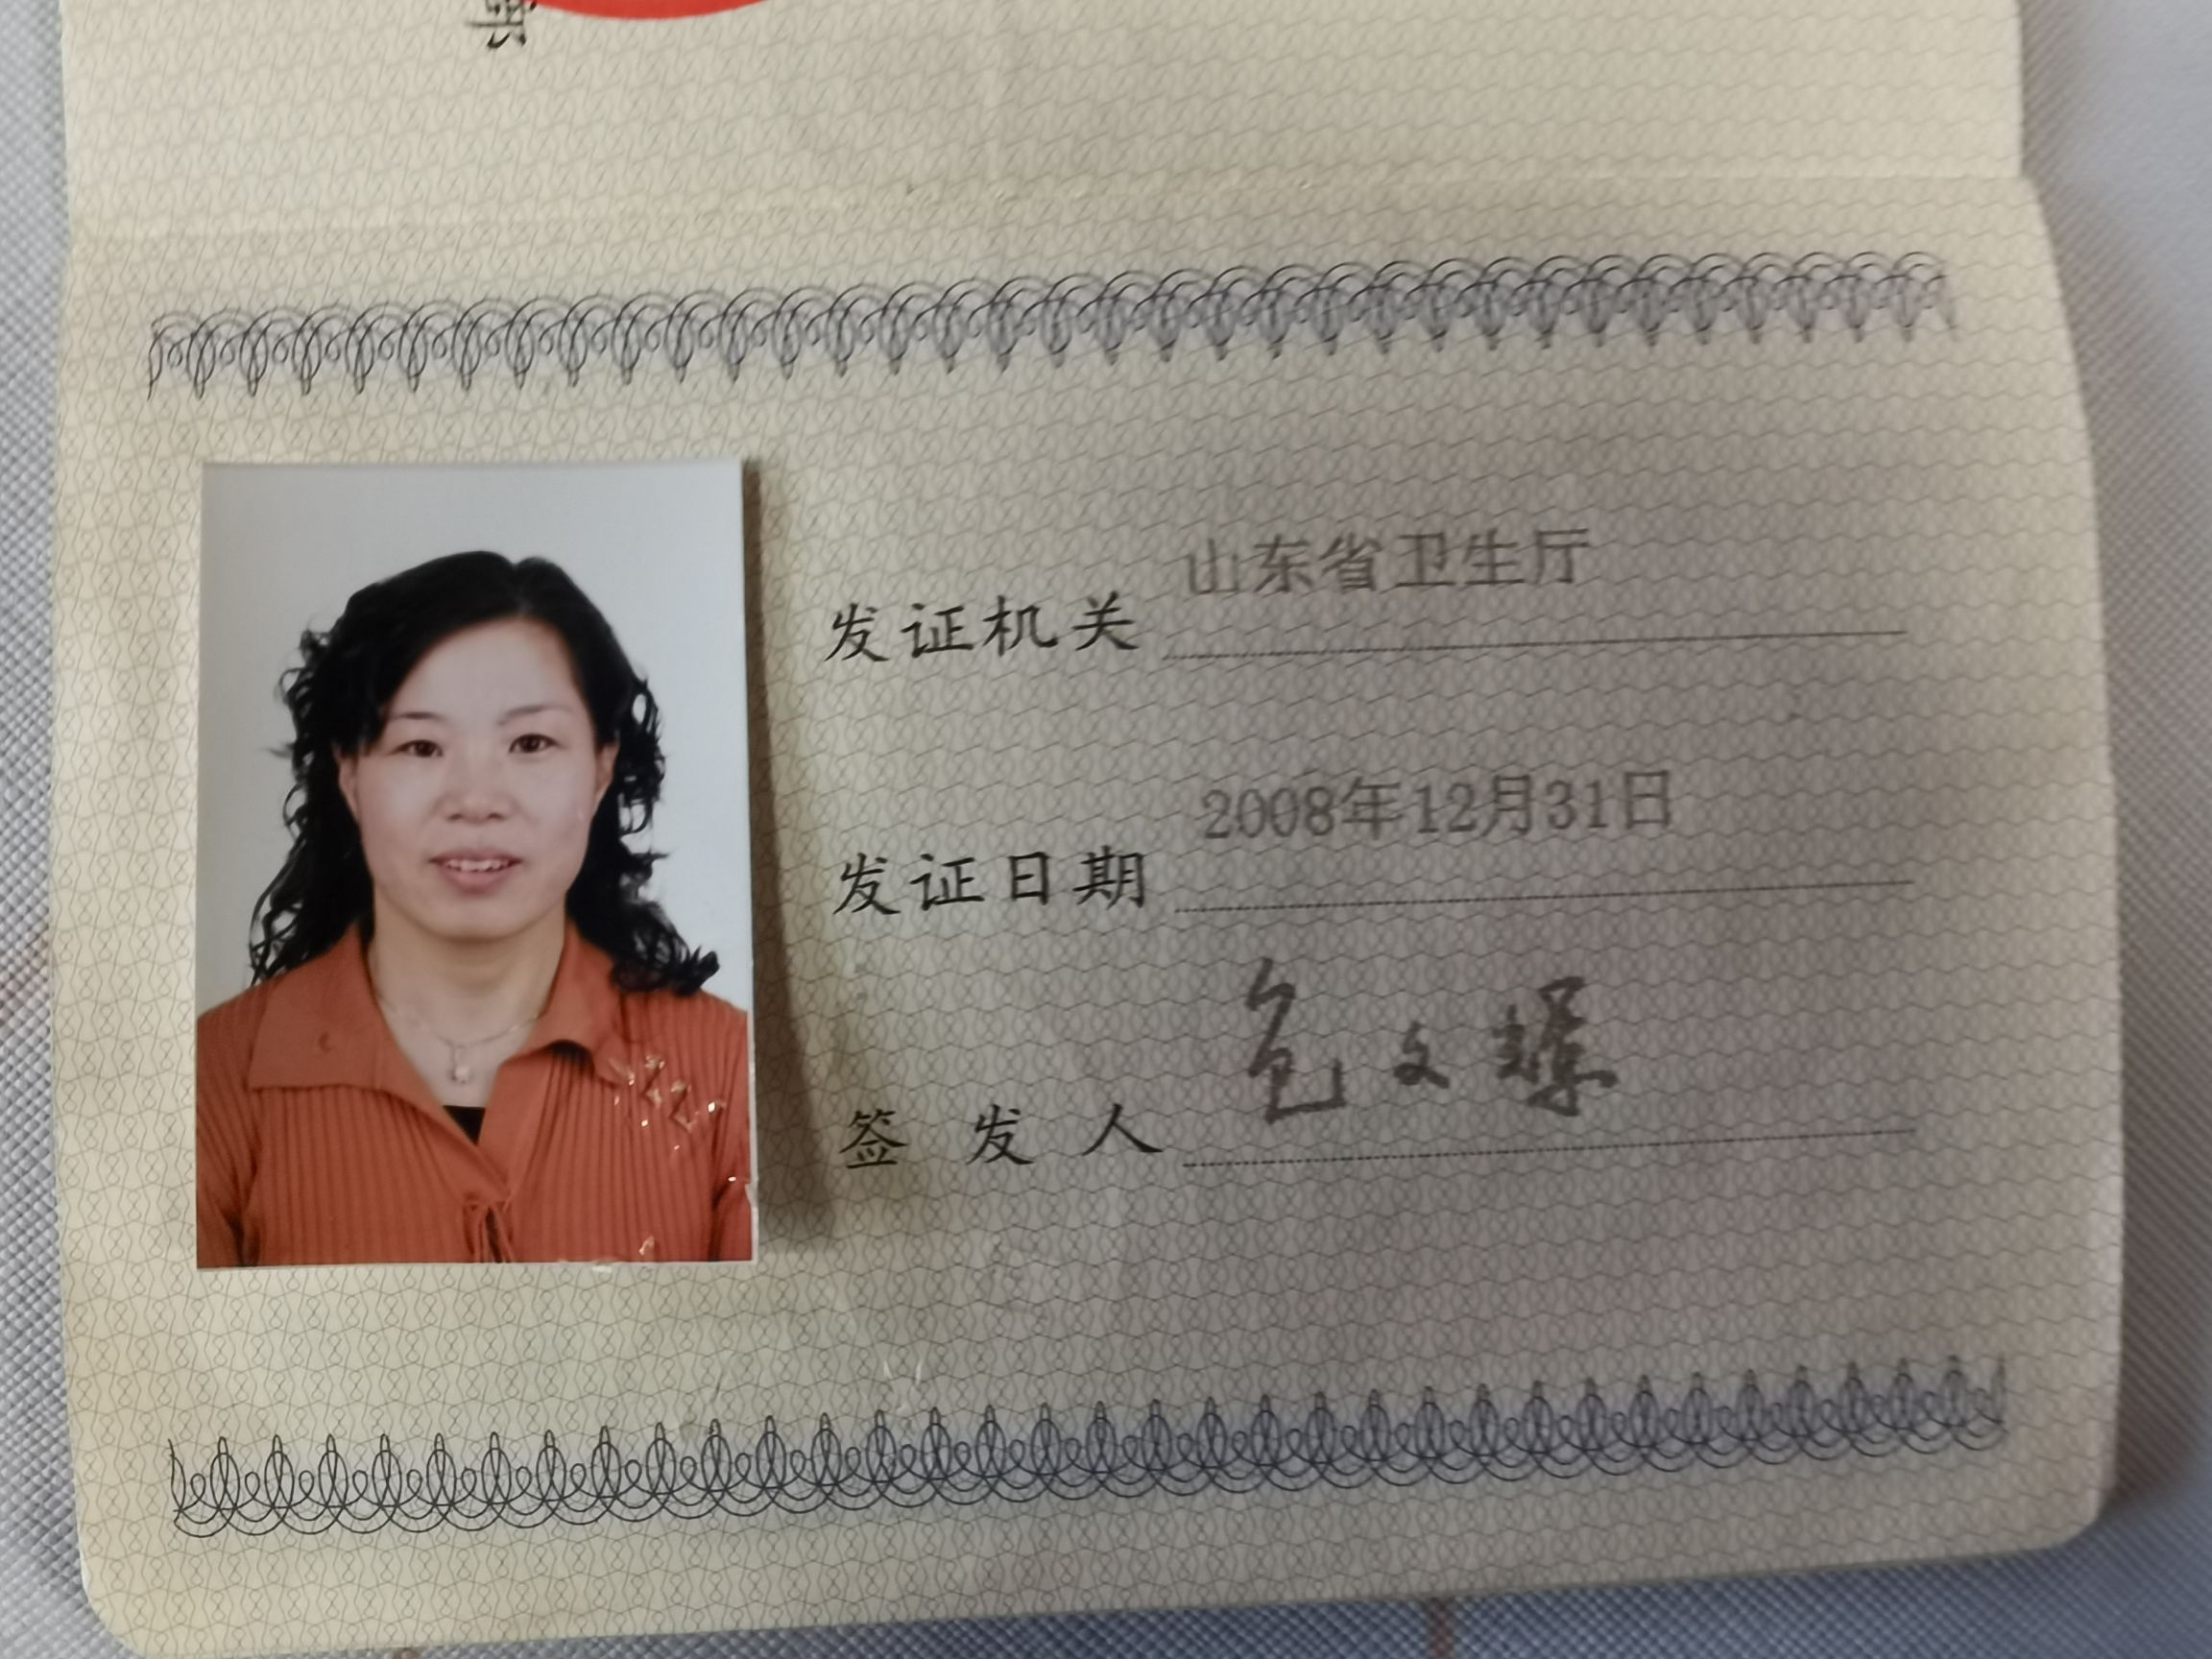 山东省卫生厅
发证机关
2008年12月31日
发证日期
包文辉
签发人